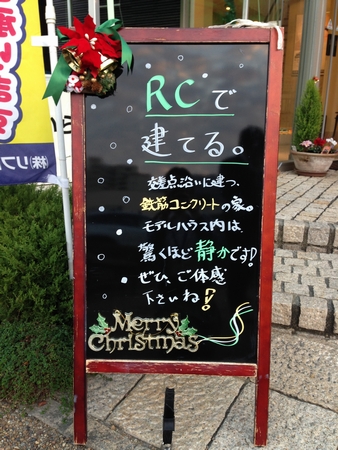 RCで
建てる。
交差点沿いに建つ、
鉄筋コンクリートの家。
モデルハウス内は、
驚くほど静かです!
ぜひ、ご体感
下さいね!
Merry
Christmas
㈱リフ